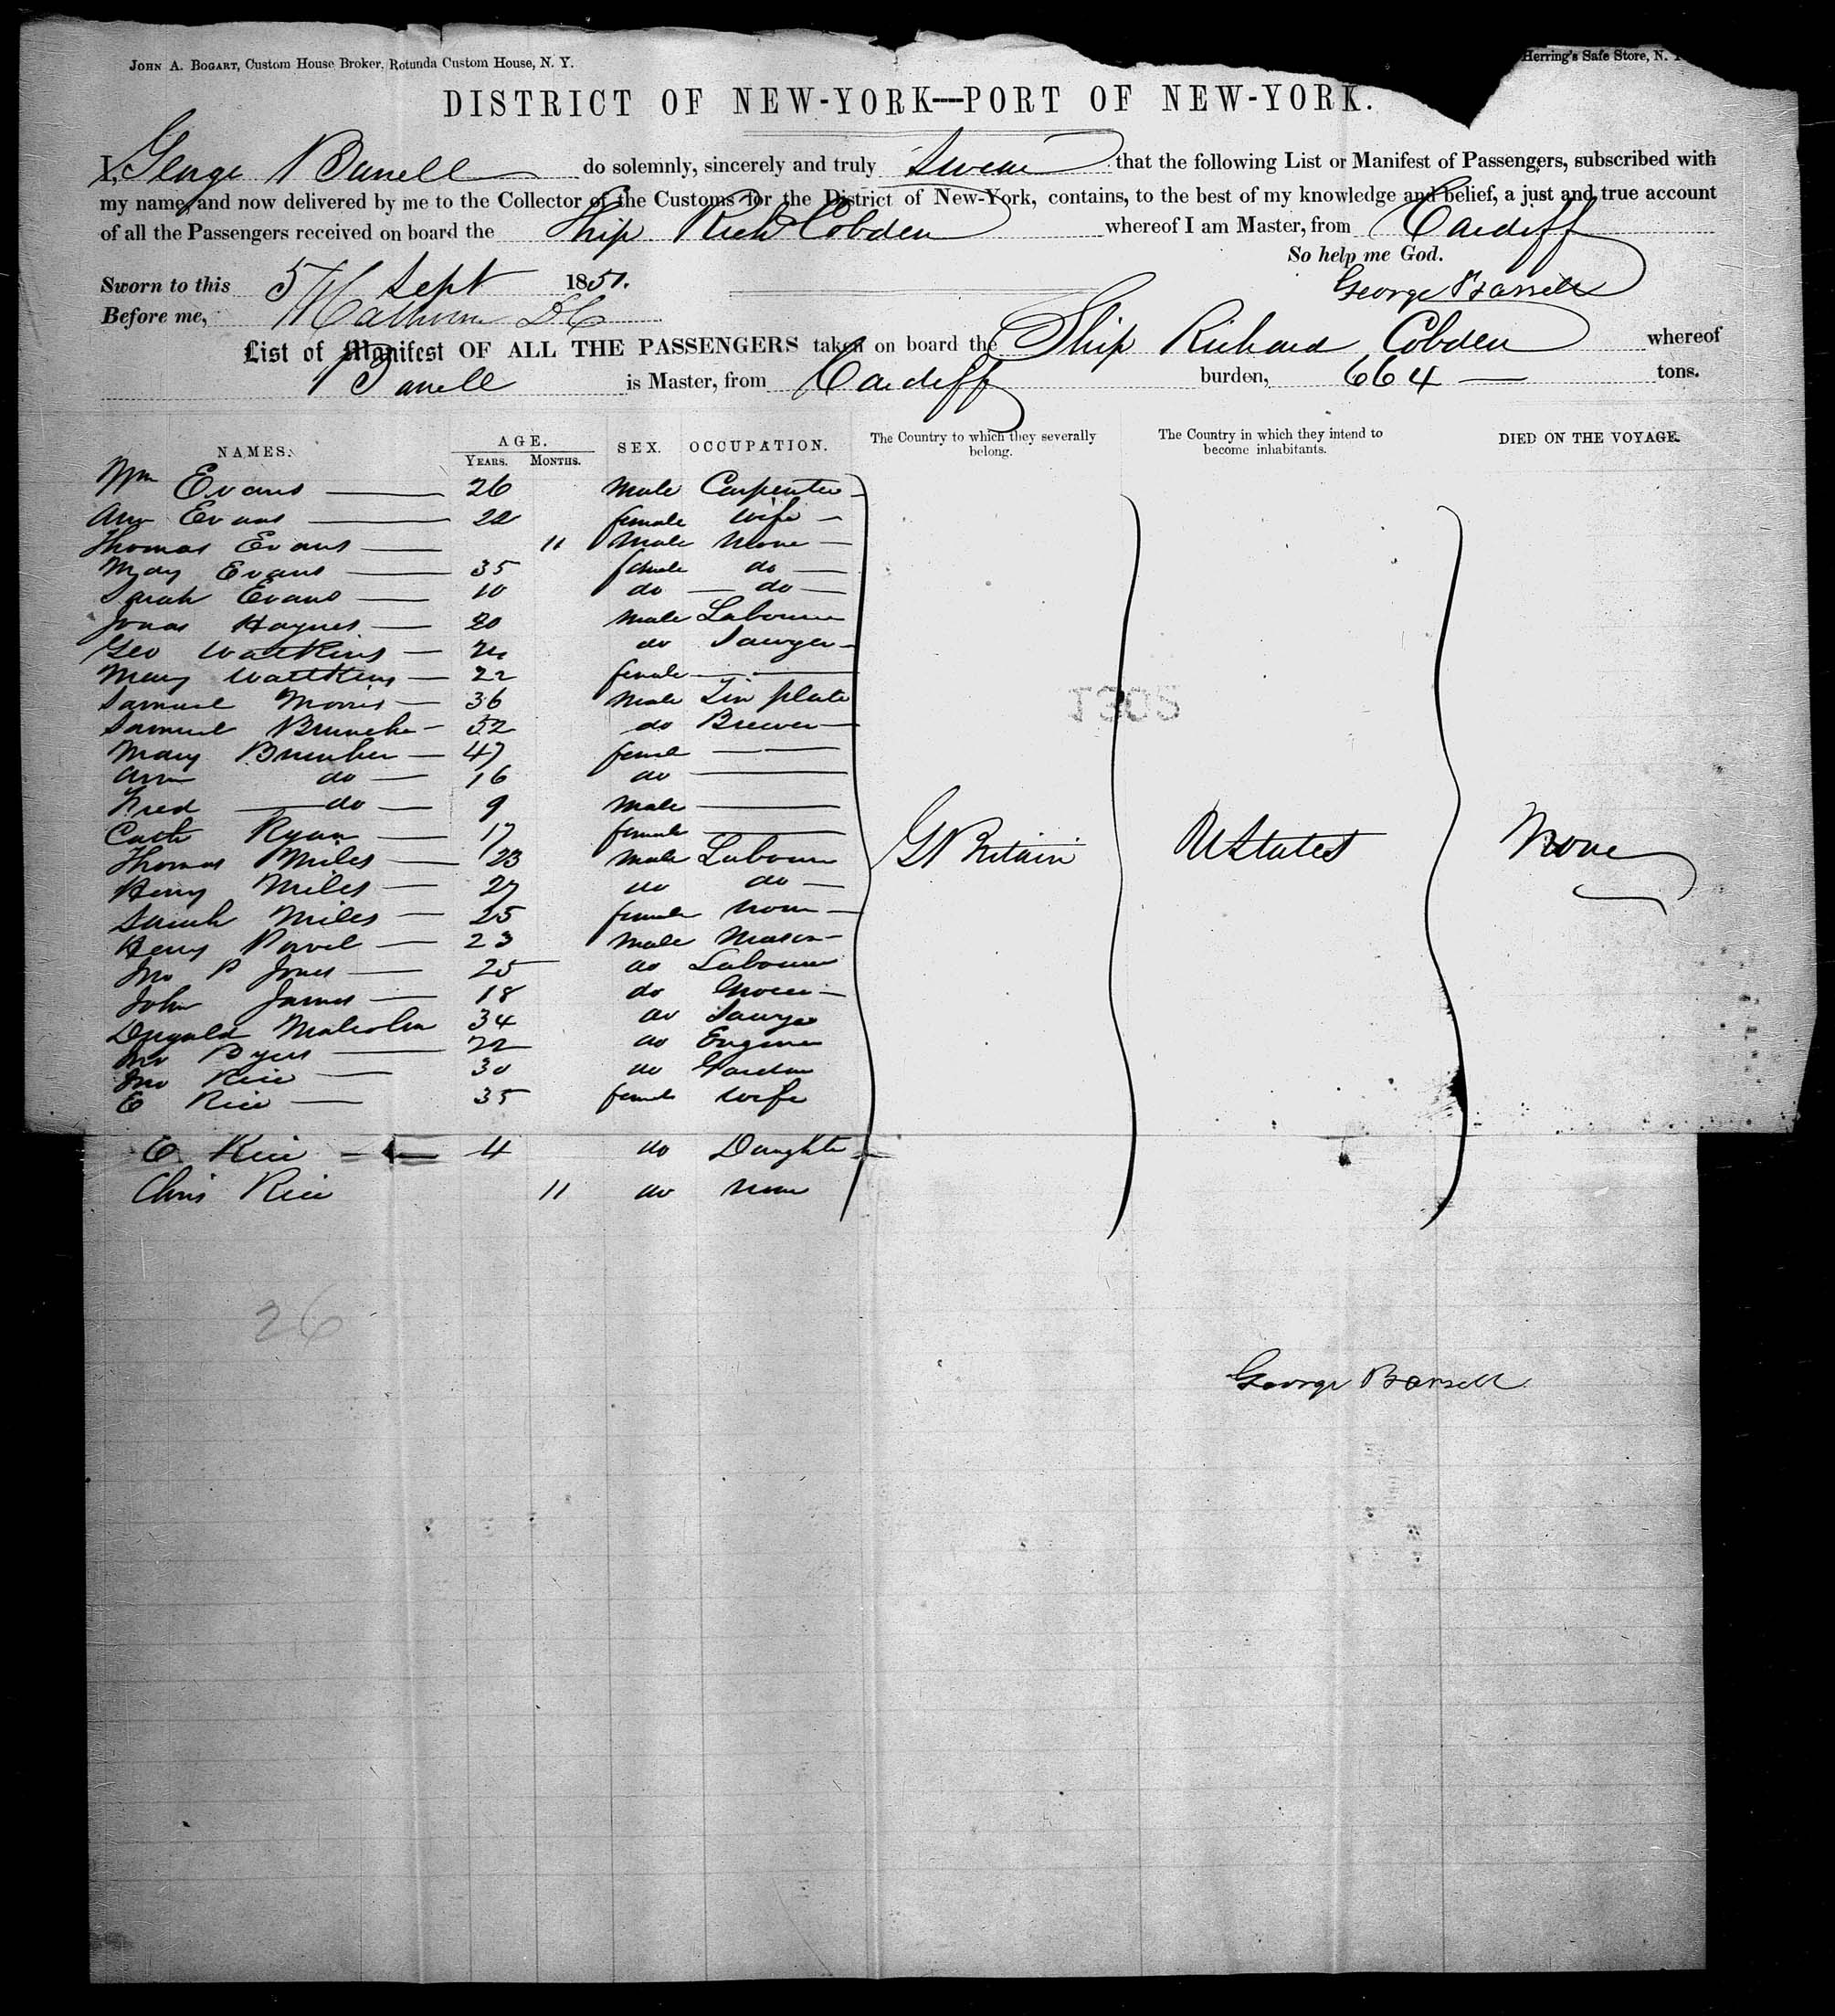 JOHN A. BOGART, Custom House Broker, Rotunda Custom House, N. Y.
Herring's Safe Store, N. Y
DISTRICT OF NEW-YORK—PORT OF NEW-YORK.
I, George Barrell do solemnly, sincerely and truly swear that the following List or Manifest of Passengers, subscribed with
my name, and now delivered by me to the Collector of the Customs for the District of New-York, contains, to the best of my knowledge and belief, a just and true account
of all the Passengers received on board the Ship Richd Cobden whereof I am Master, from Cardiff
So help me God.
Sworn to this 5 Sept 1851.
George Barrell
Before me,
List of Manifest OF ALL THE PASSENGERS taken on board the Ship Richard Cobden whereof
Barrell is Master, from Cardiff burden, 664 — tons.
NAMES. AGE. SEX. OCCUPATION. The Country to which they severally belong. The Country in which they intend to become inhabitants. DIED ON THE VOYAGE.
YEARS. MONTHS.
Wm Evans 26 Male Carpenter
Ann Evans 22 female Wife
Thomas Evans 11 Male None
Mary Evans 35 female do
Sarah Evans 10 do do
Jonas Haynes 20 Male Labourer
Geo Wattkins 24 do Sawyer
Mary Wattkins 22 female
Samuel Morris 36 Male Tin plate
Samuel Bruncker 52 do Brewer
Mary Bruncker 47 femal
Ann do 16 do
Fred do 9 Male
Cath Ryan 17 female
Thomas Miles 23 Male Labourer
Henry Miles 27 do do
Sarah Miles 25 female None
Henry Powel 23 Male Mason
Jno P Jones 25 do Labourer
John James 18 do Grocer
Dugald Malcolm 34 do Sawyer
Jno Pyer 22 do Engineer
Jno Rice 30 do Garden
E Rice 35 female Wife
E Rice 4 do Daughter
Chris Rice 11 do None
Gt Britain
U States
None
1308
26
George Barrell